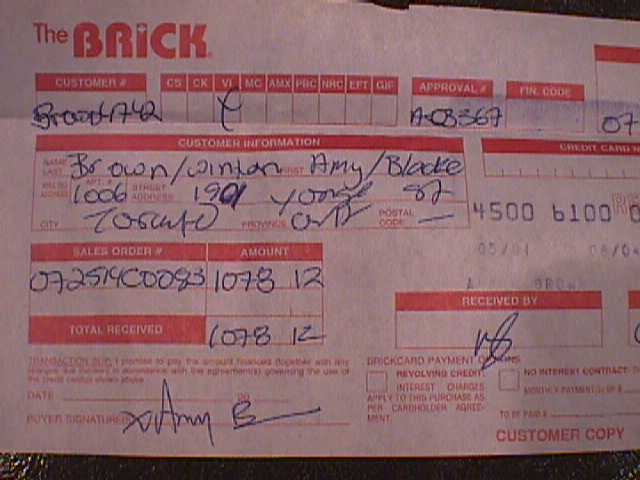 The BRICK
CUSTOMER # CS CK VI MC AMX PBC NRC EFT GIF APPROVAL # FIN. CODE
A-03367 07
CUSTOMER INFORMATION CREDIT CARD N
NAME LAST Brown/Winton FIRST Amy/Blake
APT. # 1006 STREET ADDRESS 1901 Yonge St
CITY Toronto PROVINCE Ont POSTAL CODE —
4500 6100
05/01
SALES ORDER # AMOUNT
1078 12
RECEIVED BY
TOTAL RECEIVED 1078 12
TRANSACTION SLIP: I promise to pay the amount financed (together with any
charges due thereon) in accordance with the agreement(s) governing the use of
the credit card(s) shown above
DATE
BUYER SIGNATURE X Amy B
BRICKCARD PAYMENT OPTIONS
REVOLVING CREDIT:
INTEREST CHARGES
APPLY TO THIS PURCHASE AS
PER CARDHOLDER AGREE-
MENT.
NO INTEREST CONTRACT:
MONTHLY PAYMENT(S) OF $
TO BE PAID $
CUSTOMER COPY